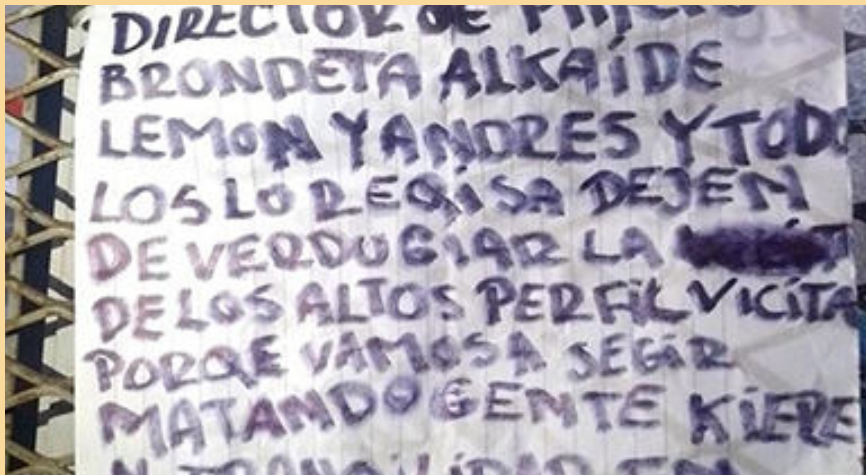 DIRECTOR DE
BRONDETA ALKAÍDE
LEMON Y ANDRES Y TODO
LOS LO REQISA DEJEN
DE VERDUGIAR LA
DE LOS ALTOS PERFIL VICÍTA
PORQE VAMOS A SEGIR
MATANDO GENTE KIERE
N TRANQILIDAD EN